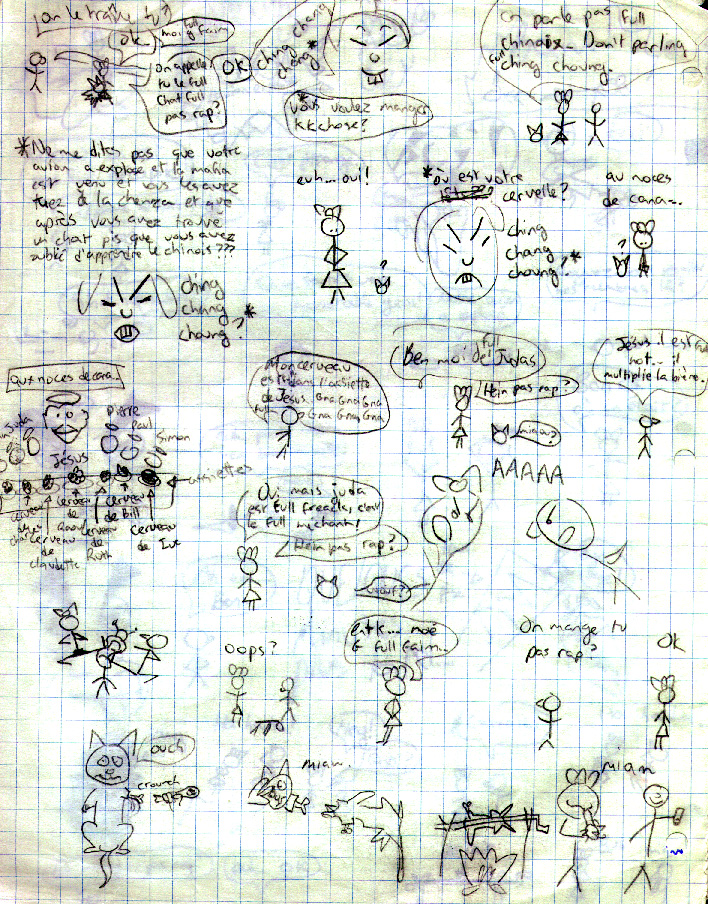 on le traîne tu?
OK
full
moi g faim
On appelle
tu le full
chat full
pas rap?
OK
ching chang
choung*
*Vous voulez manger
kkchose?
on parle pas full
chinois... Don't parling
full
ching choung.
*Ne me dites pas que votre
avion a explosé et la mafia
est venu et vous les avez
tuez à la
après vous avez trouvé
un chat pis que vous avez
oublié d'apprendre le chinois???
ching
chang
choung?*
euh... oui!
?
*où est votre
cervelle?
ching
chang
choung?*
au noces
de cana...
?
aux noces de cana...
Juda
Jésus
Pierre
Paul
Simon
assiettes
cerveau
cerveau
de
claudette
cerveau
de
Ruth
cerveau
de Bill
cerveau
de Luc
mon cerveau
est dans l'assiette
de Jesus. Gna Gna Gna
full
Gna Gna Gna
full
Ben moi de Judas
Hein pas rap?
miaou?
Jésus il est full
hot... il
multiplie la bière.
Oui mais juda
est full freak, c'est
le full méchant!
Hein pas rap?
ouaf?
AAAAA
oops?
entk... moé
G full faim...
On mange tu
pas rap?
OK
ouch
crounch
miam.
miam